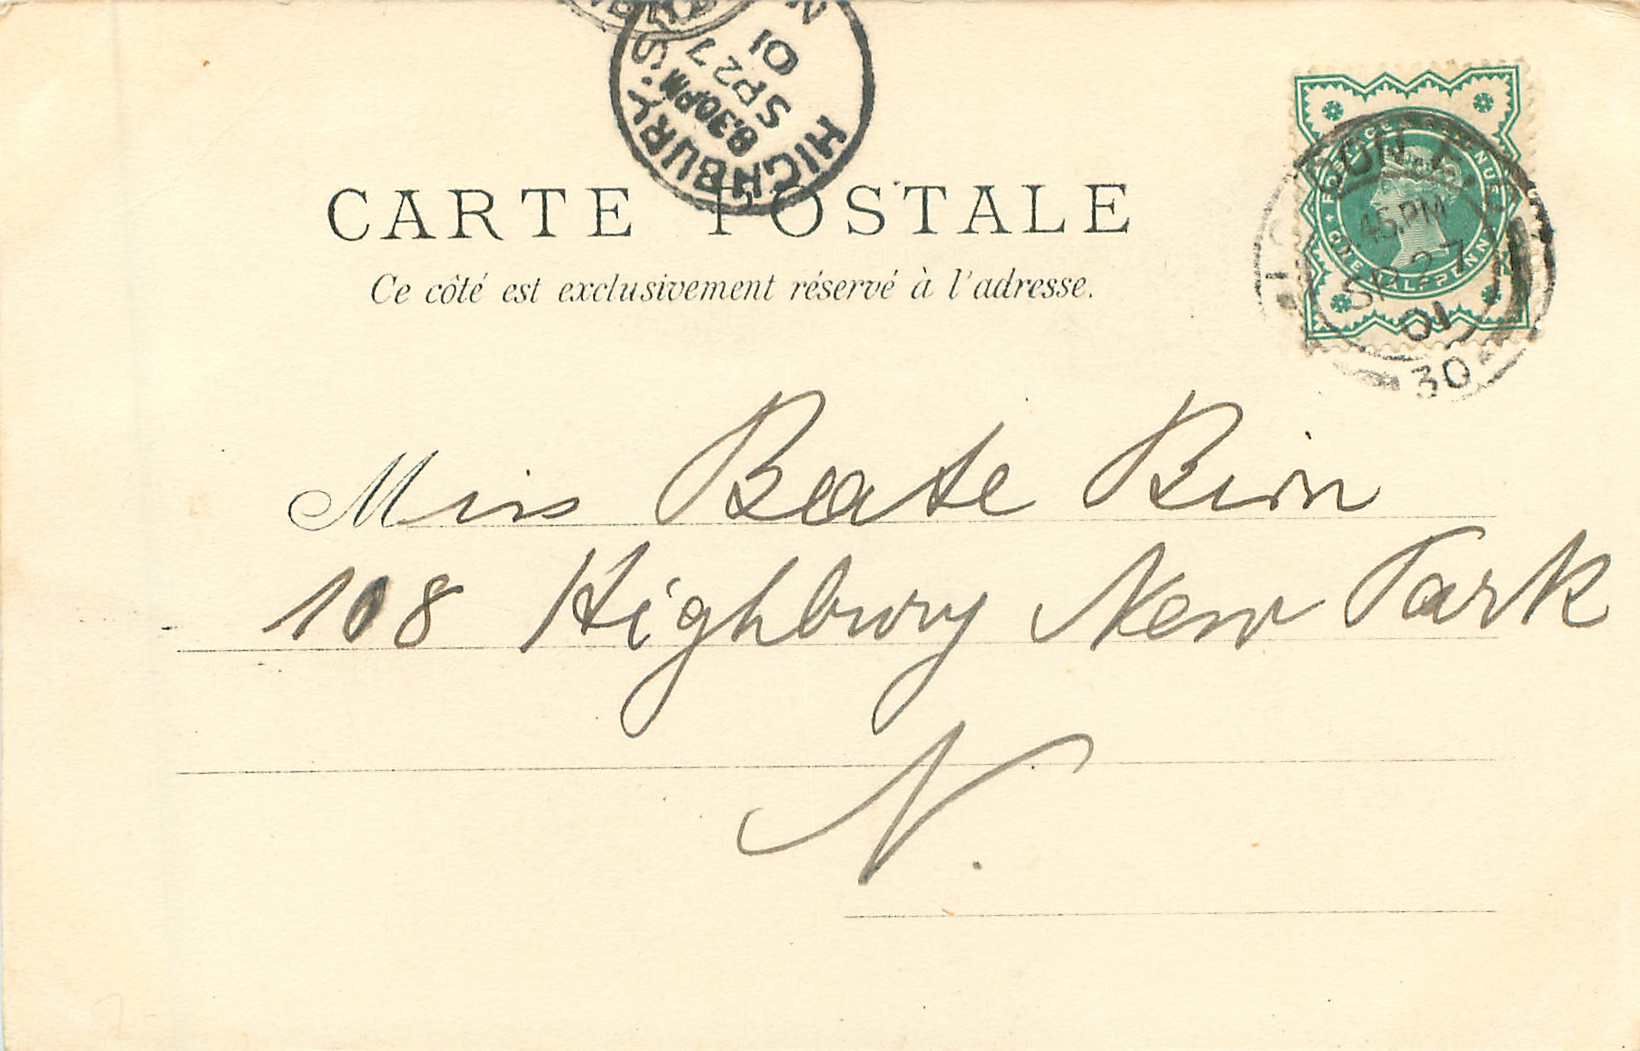 HIGHBURY. S.
8.30PM
SP 27
01
N
POSTAGE & REVENUE
ONE HALFPENNY
LONDON
.45.PM
SP 27
01
30
CARTE POSTALE
Ce côté est exclusivement réservé à l'adresse.
Miss Beate
108 Highbury New Park
N.